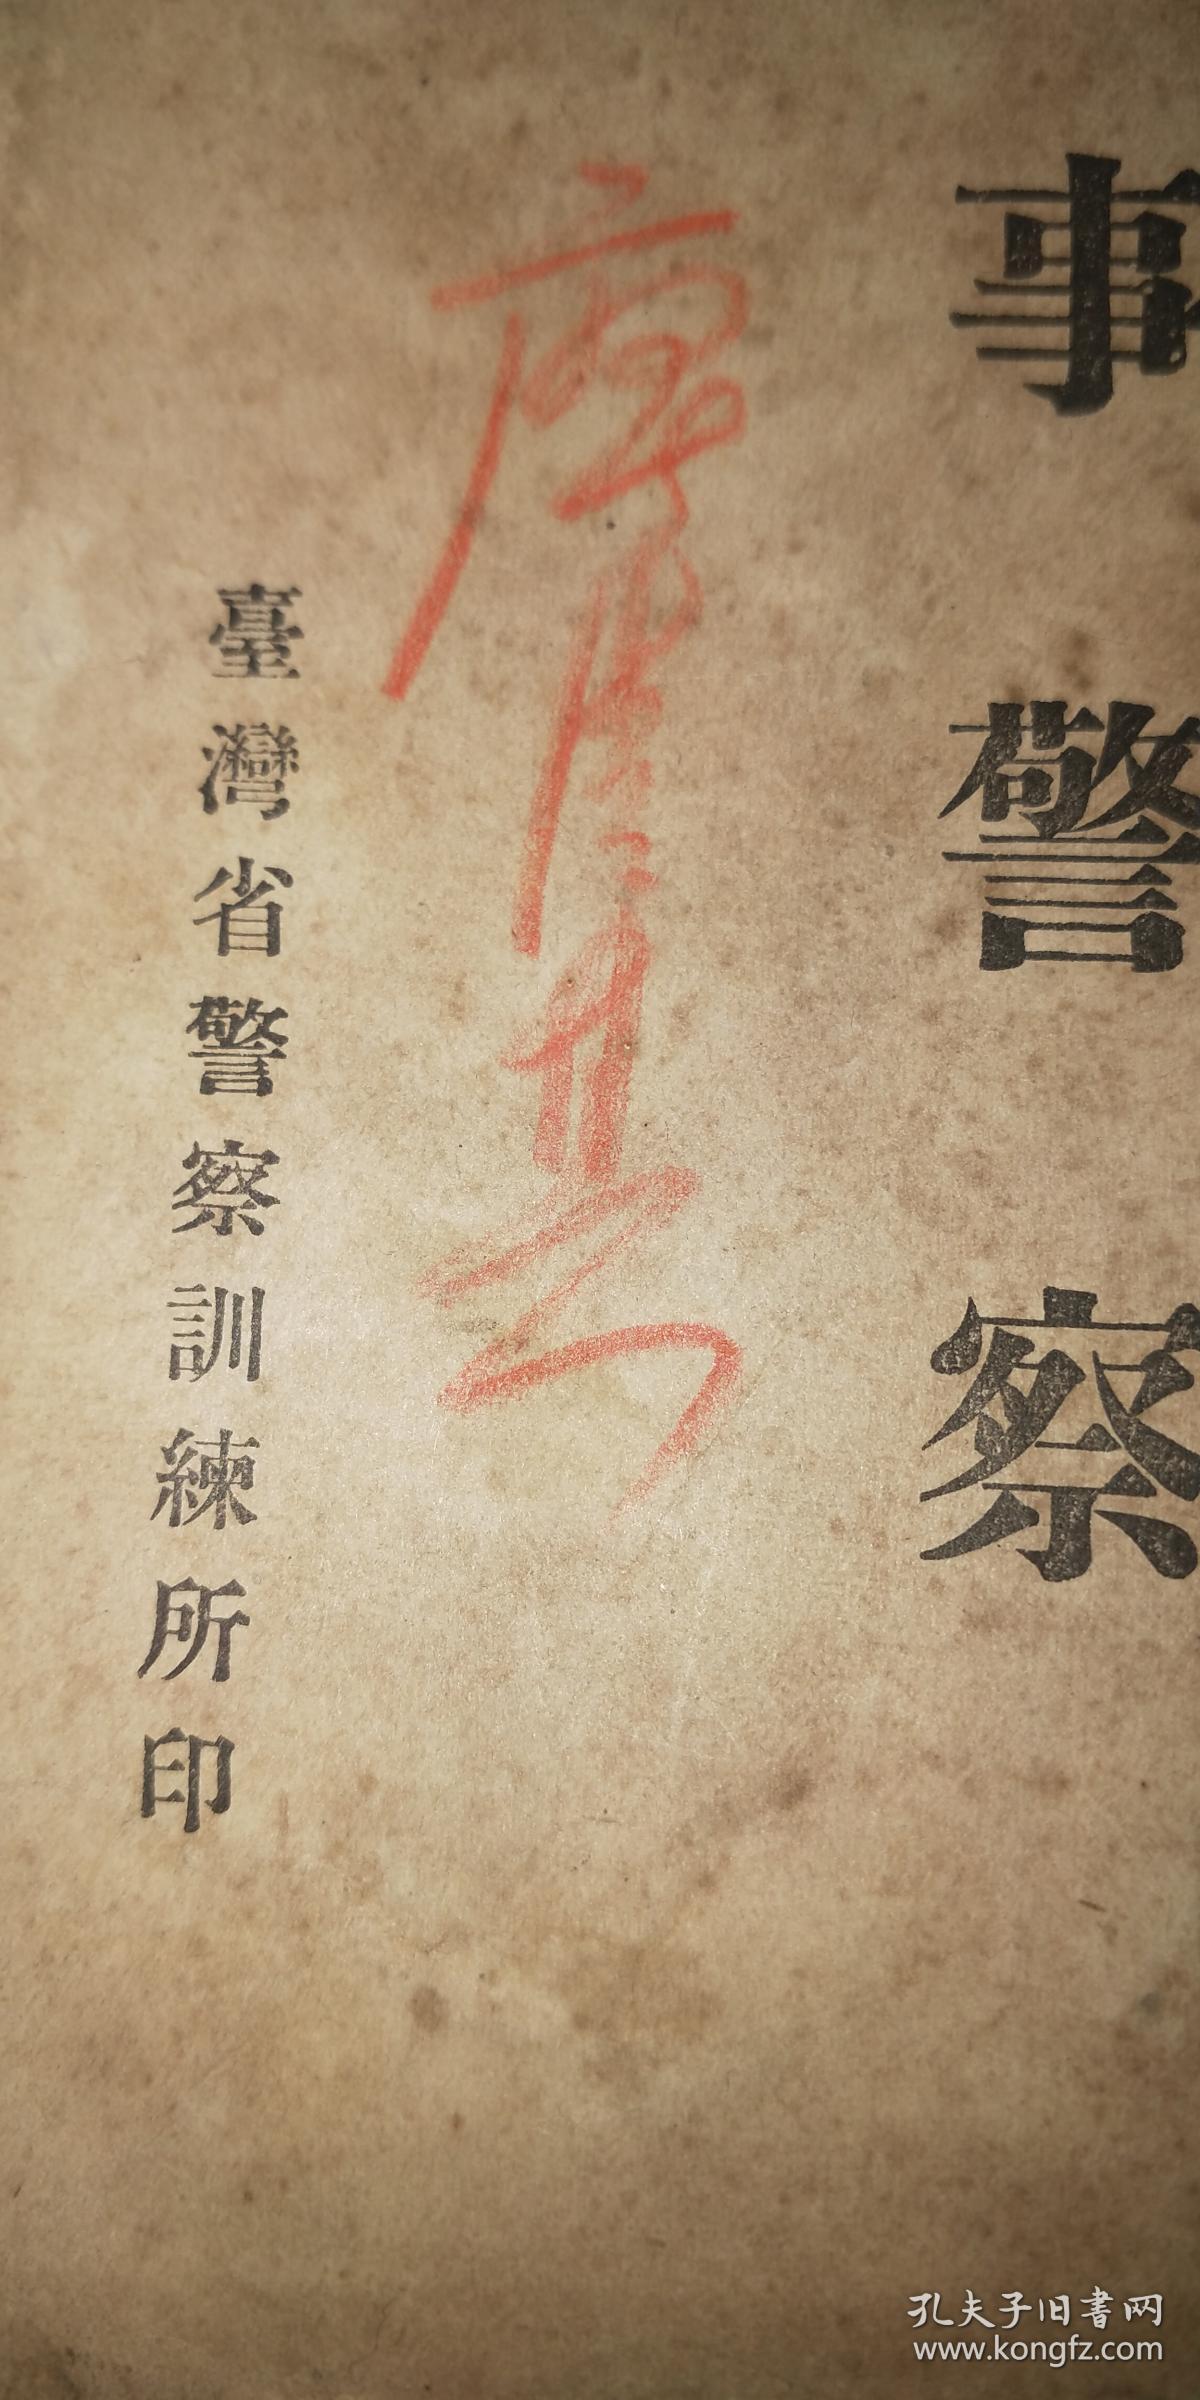 事警察
臺灣省警察訓練所印
孔夫子旧書网
www.kongfz.com